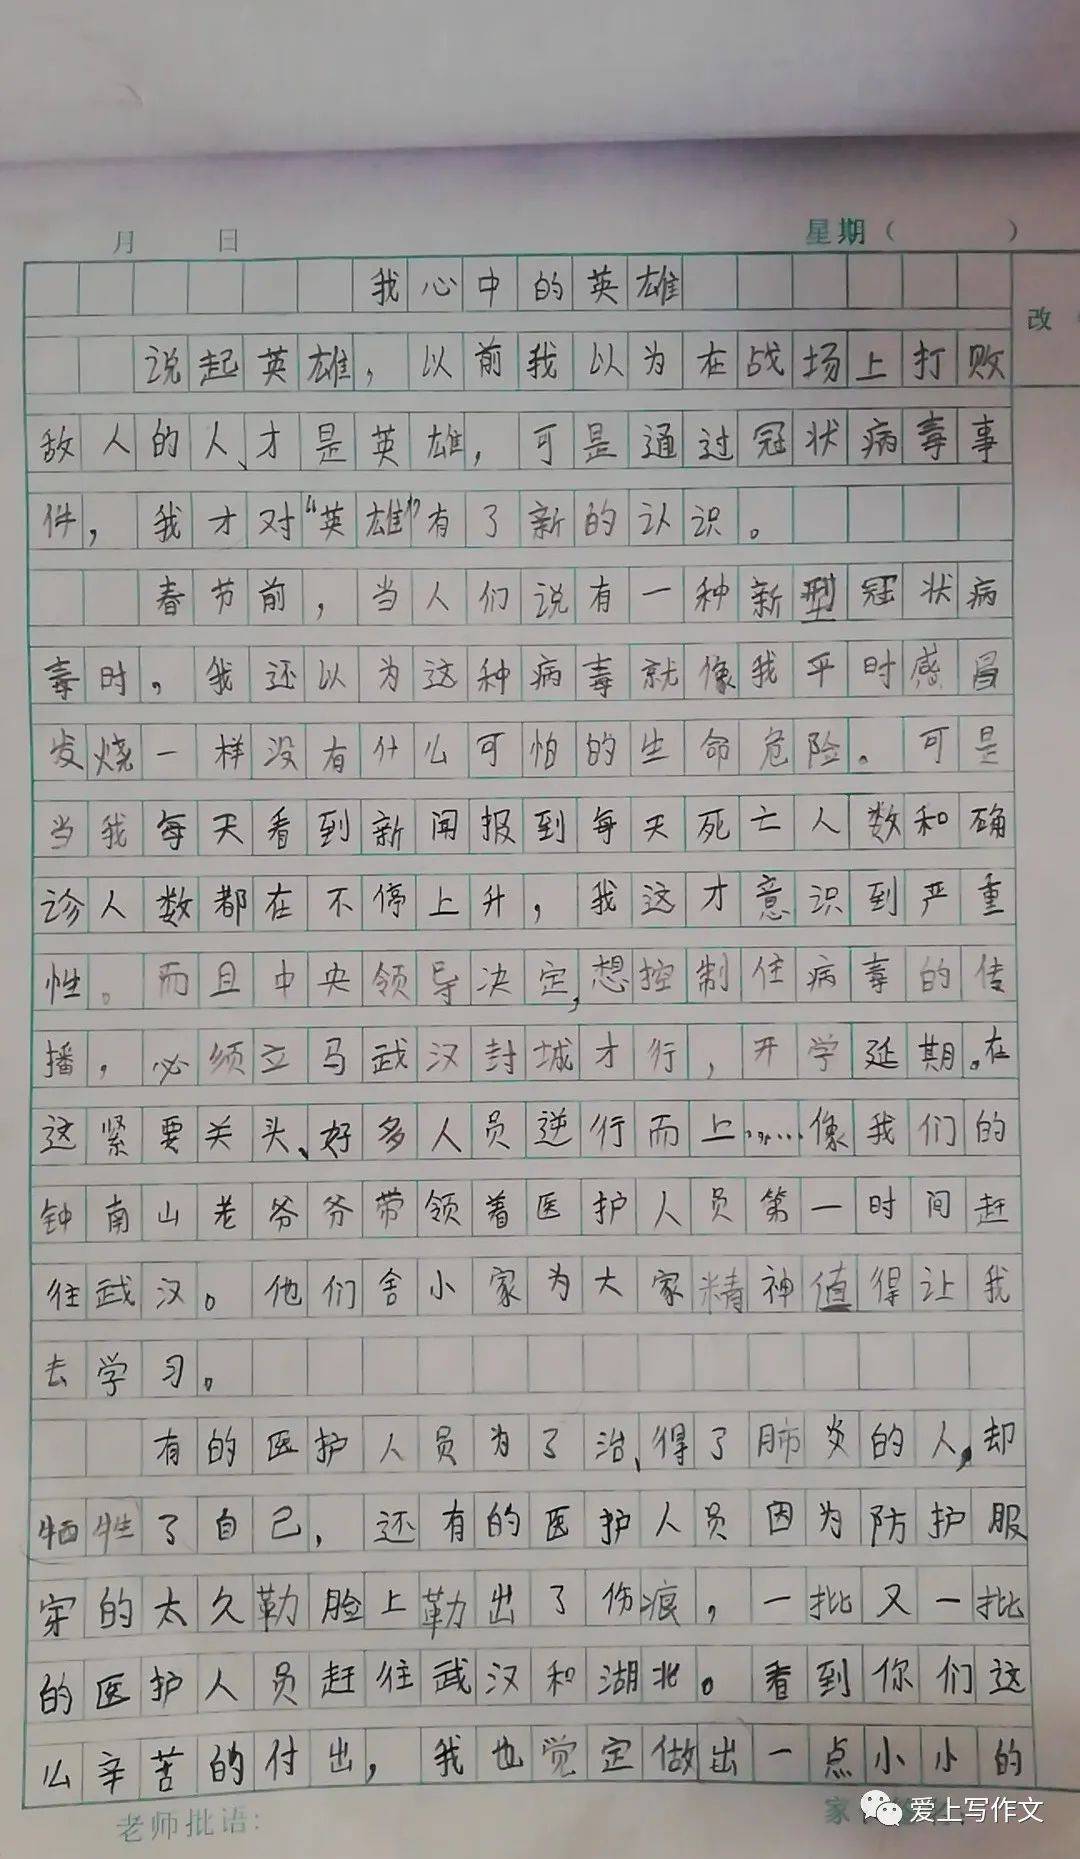 月 日 星期（ ）
我心中的英雄
改
说起英雄，以前我以为在战场上打败
敌人的人、才是英雄，可是通过冠状病毒事
件，我才对“英雄”有了新的认识。
春节前，当人们说有一种新型冠状病
毒时，我还以为这种病毒就像我平时感冒
发烧一样没有什么可怕的生命危险。可是
当我每天看到新闻报到每天死亡人数和确
诊人数都在不停上升，我这才意识到严重
性。而且中央领导决定，想控制住病毒的传
播，必须立马武汉封城才行，开学延期。在
这紧要关头、好多人员逆行而上……像我们的
钟南山老爷爷带领着医护人员第一时间赶
往武汉。他们舍小家为大家精神值得让我
去学习。
有的医护人员为了治、得了肺炎的人，却
牺牲了自己，还有的医护人员因为防护服
穿的太久勒脸上勒出了伤痕，一批又一批
的医护人员赶往武汉和湖北。看到你们这
么辛苦的付出，我也觉定做出一点小小的
老师批语：
家
爱上写作文